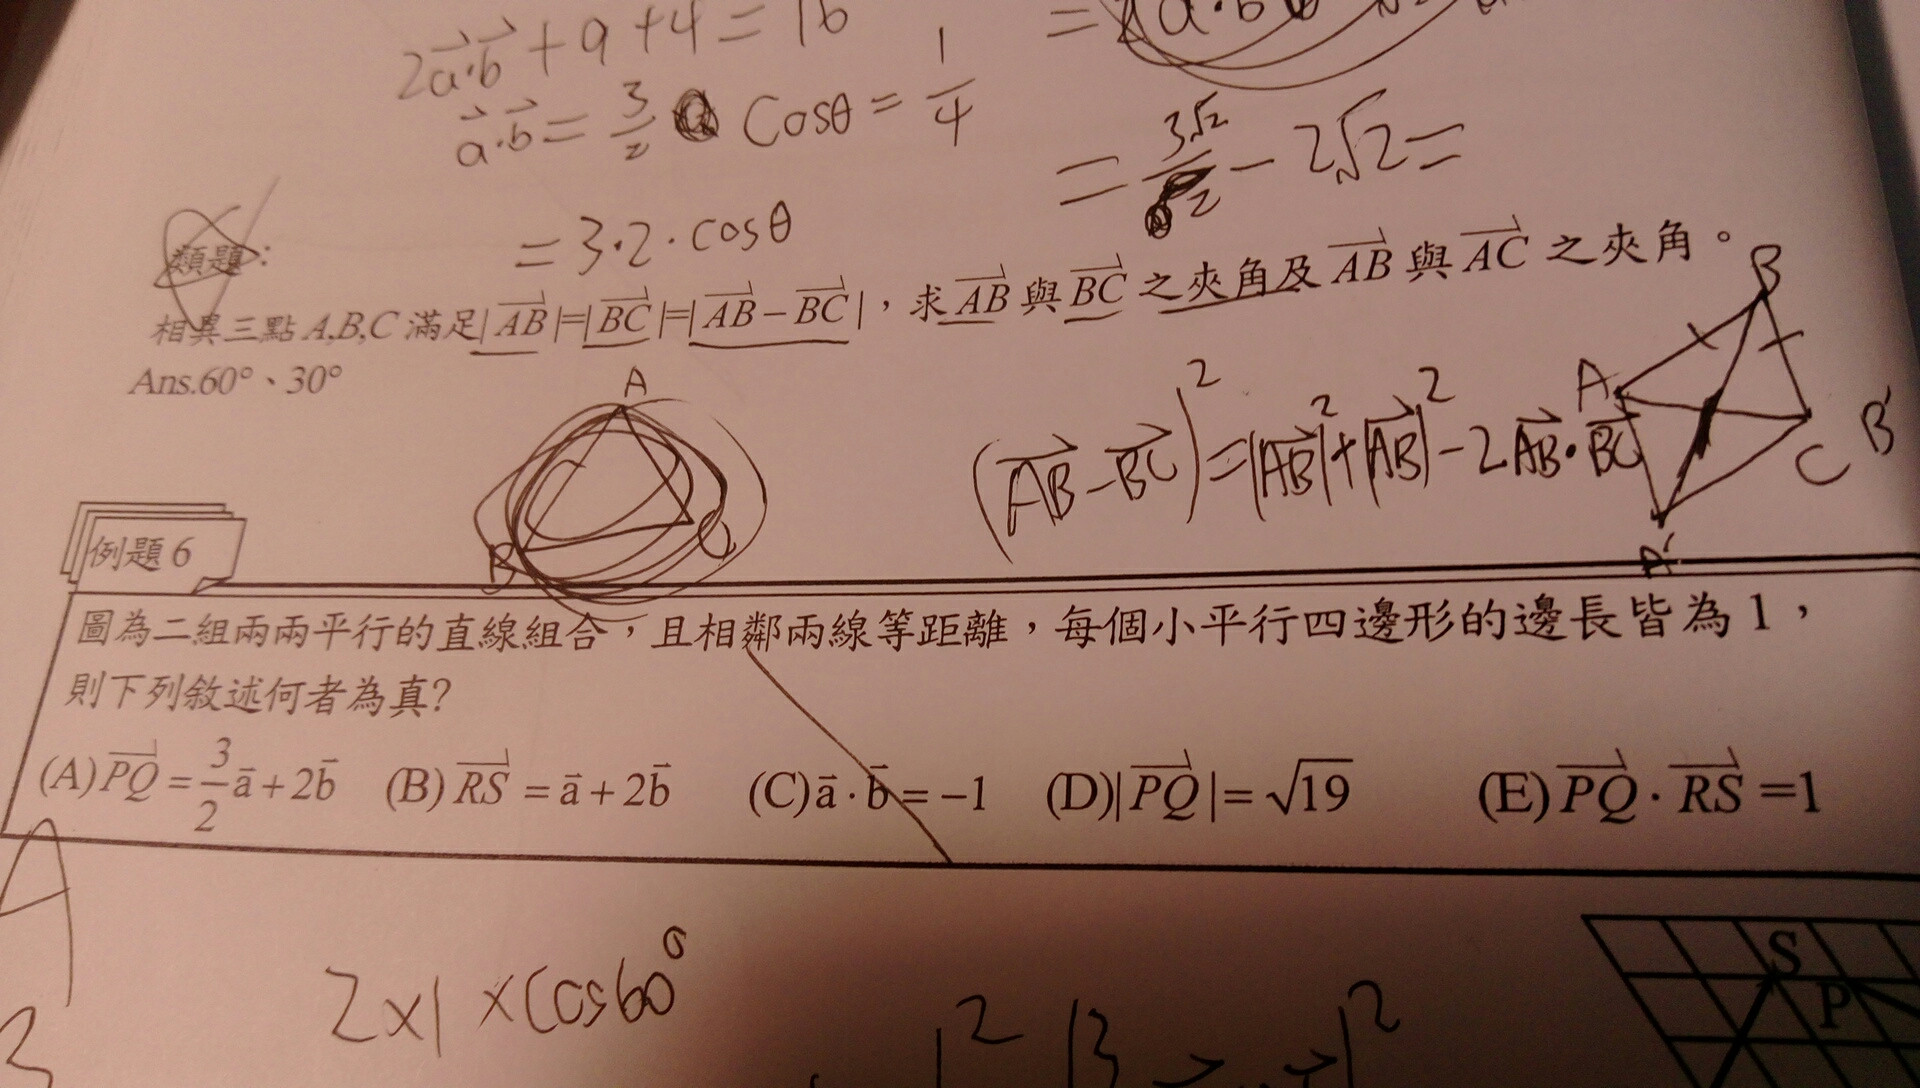 2a⃗·b⃗+9+4=16
a⃗·b⃗=3/2 Cosθ=1/4
=3·2·cosθ
=3√2/2-2√2=
類題:
相異三點A,B,C滿足|AB⃗|=|BC⃗|=|AB⃗-BC⃗|,求AB⃗與BC⃗之夾角及AB⃗與AC⃗之夾角。
Ans.60°、30°
A
B
C
(AB⃗-BC⃗)²=|AB⃗|²+|AB⃗|²-2AB⃗·BC⃗
B
A
C
B'
A'
例題6
圖為二組兩兩平行的直線組合,且相鄰兩線等距離,每個小平行四邊形的邊長皆為1,
則下列敘述何者為真?
(A)PQ⃗=3/2a⃗+2b⃗ (B)RS⃗=a⃗+2b⃗ (C)a⃗·b⃗=-1 (D)|PQ⃗|=√19 (E)PQ⃗·RS⃗=1
2×1×Cos60°
S
P